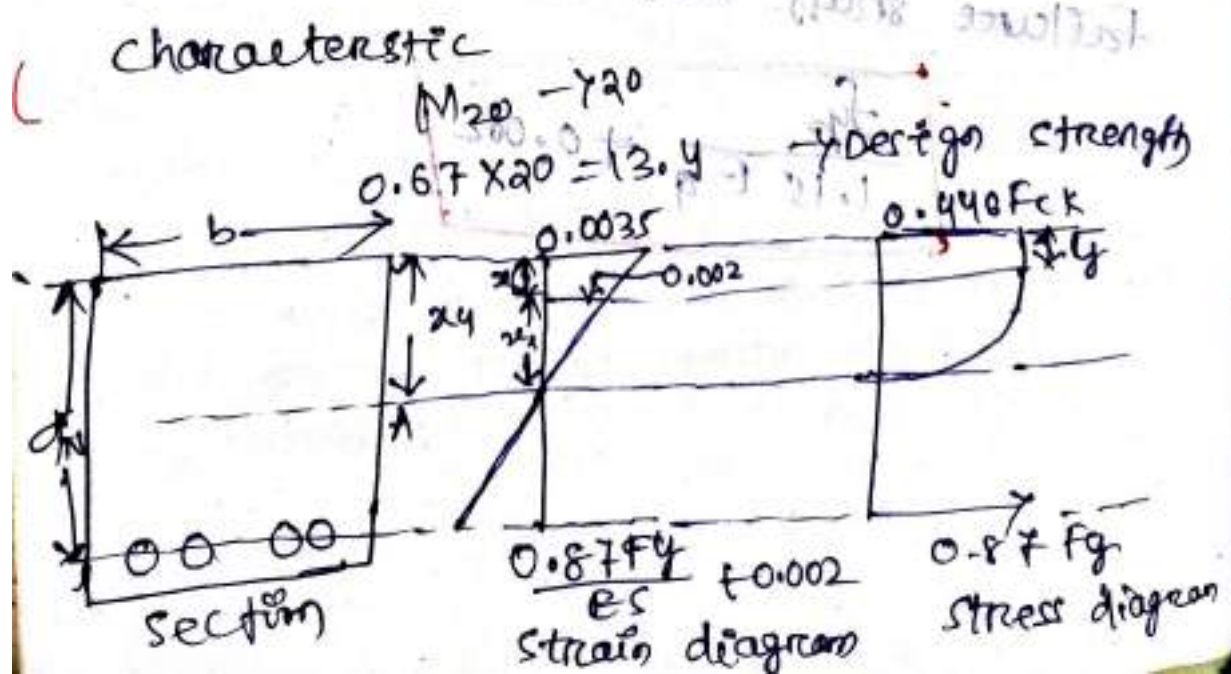 characterstic
M20 -720
0.67 X20 = 13.4 → Design strength
b 0.0035 0.446 Fck
0.002 y
d
0.87Fy / Es + 0.002 0.87 Fy
section strain diagram stress diagram